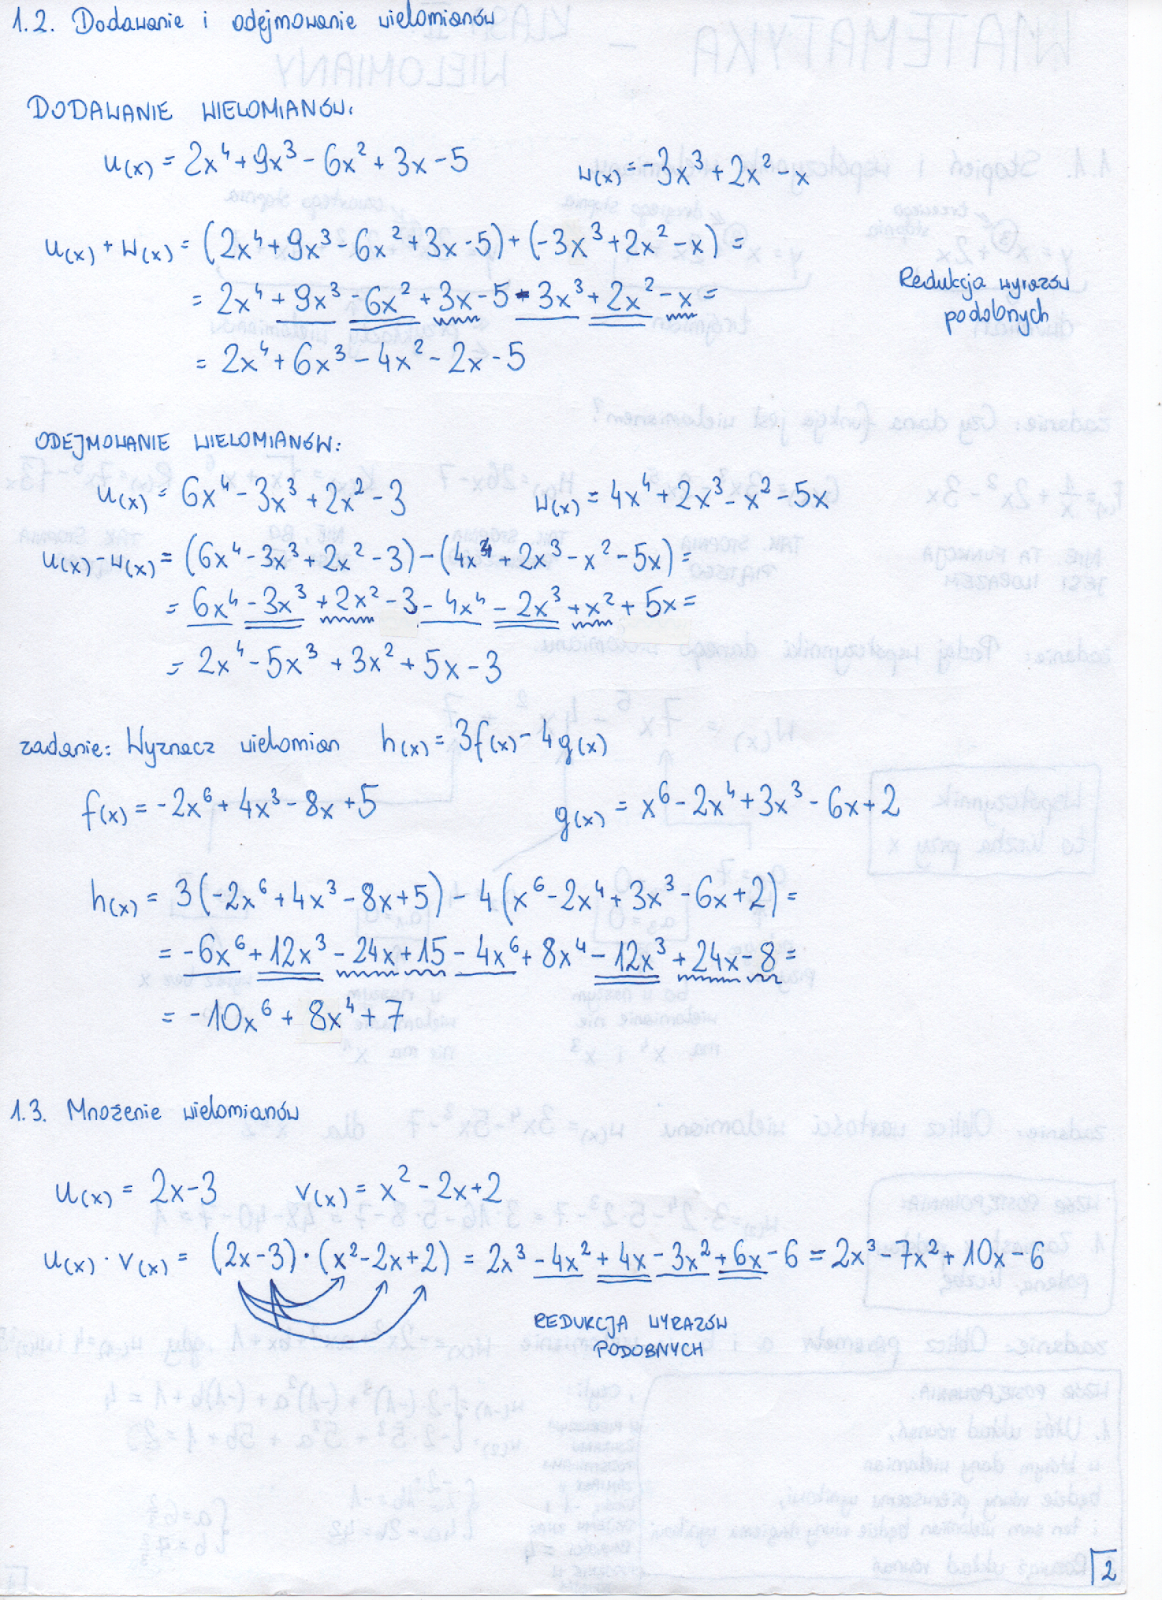 1.2. Dodawanie i odejmowanie wielomianów
DODAWANIE WIELOMIANÓW:
u(x) = 2x⁴+9x³-6x²+3x-5 w(x)=-3x³+2x²-x
u(x)+w(x)=(2x⁴+9x³-6x²+3x-5)+(-3x³+2x²-x)=
= 2x⁴+9x³-6x²+3x-5-3x³+2x²-x=
= 2x⁴+6x³-4x²-2x-5
Redukcja wyrazów
podobnych
ODEJMOWANIE WIELOMIANÓW:
u(x)= 6x⁴-3x³+2x²-3 w(x)=4x⁴+2x³-x²-5x
u(x)-w(x)=(6x⁴-3x³+2x²-3)-(4x⁴+2x³-x²-5x)=
= 6x⁴-3x³+2x²-3-4x⁴-2x³+x²+5x=
= 2x⁴-5x³+3x²+5x-3
zadanie: Wyznacz wielomian h(x)=3f(x)-4g(x)
f(x)=-2x⁶+4x³-8x+5 g(x)=x⁶-2x⁴+3x³-6x+2
h(x)=3(-2x⁶+4x³-8x+5)-4(x⁶-2x⁴+3x³-6x+2)=
=-6x⁶+12x³-24x+15-4x⁶+8x⁴-12x³+24x-8=
= -10x⁶+8x⁴+7
1.3. Mnożenie wielomianów
u(x)= 2x-3 v(x)= x²-2x+2
u(x)·v(x)= (2x-3)·(x²-2x+2)=2x³-4x²+4x-3x²+6x-6=2x³-7x²+10x-6
REDUKCJA WYRAZÓW
PODOBNYCH
2